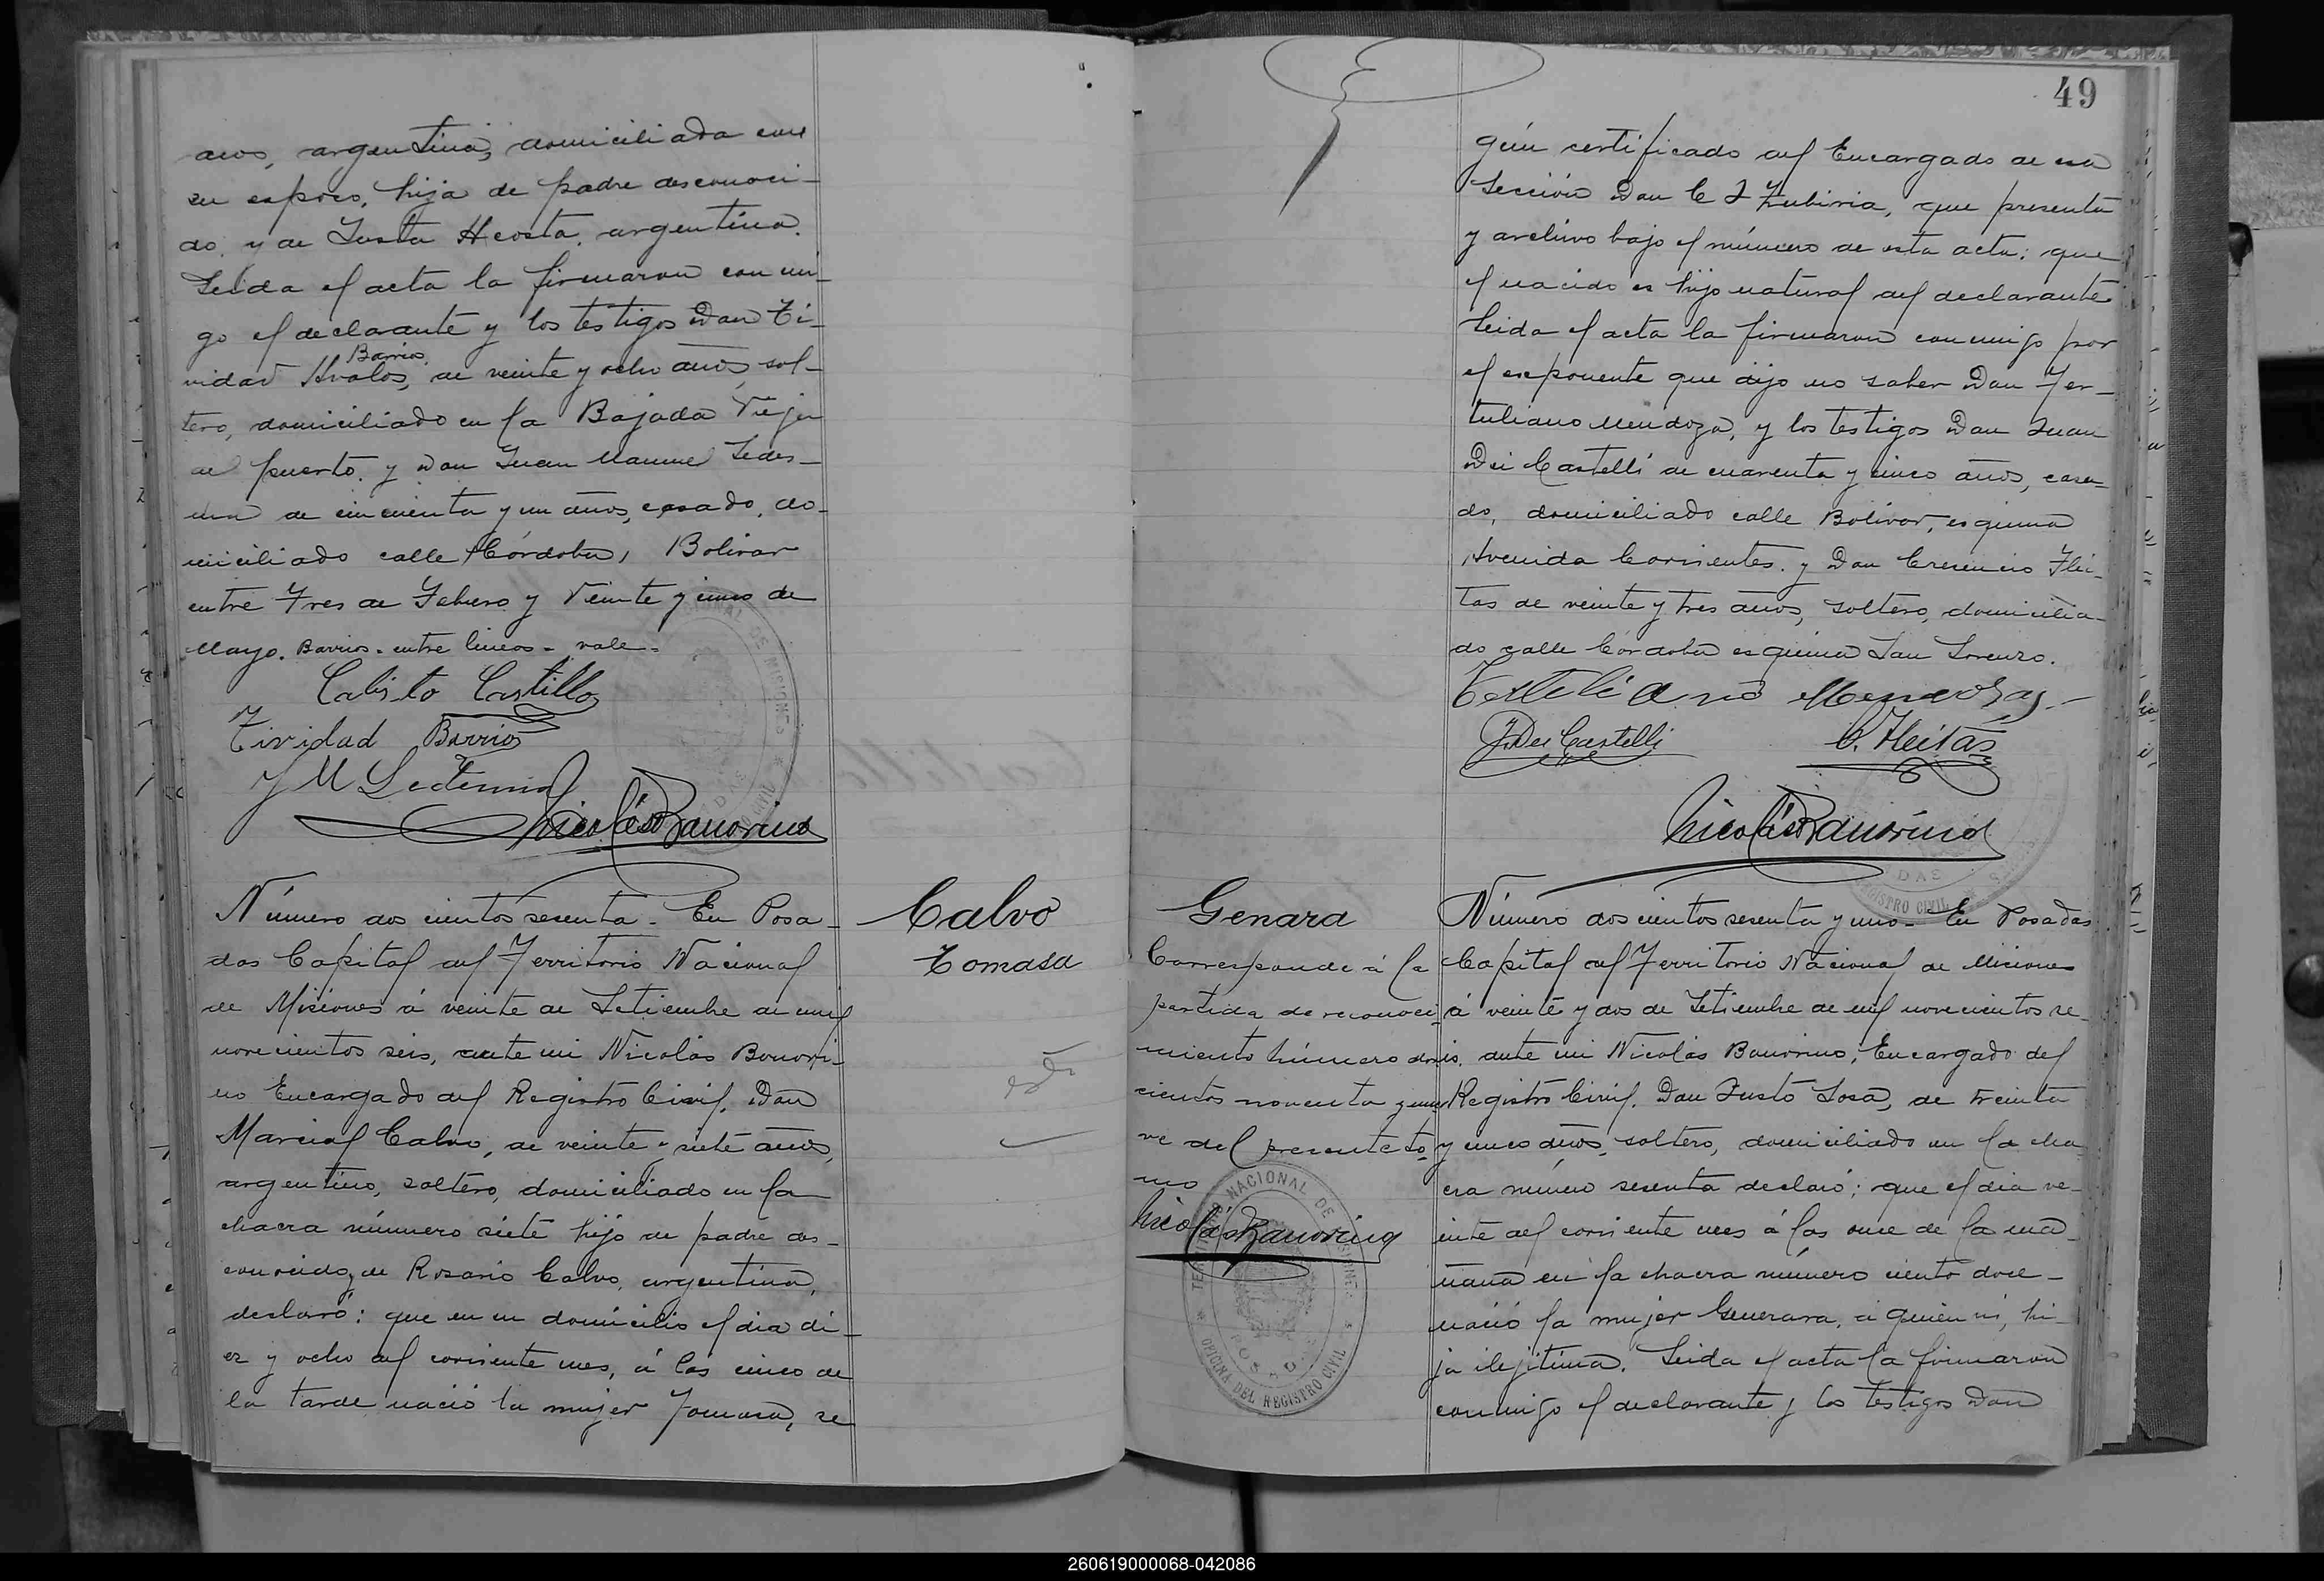 años, argentina, domiciliada con
su esposo, hija de padre desconoci-
do, y de Justa Acosta, argentina.
Leida el acta la firmaron con mi-
go el declarante y los testigos Don Ti-
Barrios
vidad Avalos, de veinte y ocho años, sol-
tero, domiciliado en la Bajada Vieja
del puerto, y Don Juan Manuel Ledes-
ma de cincuenta y un años, casado, do-
miciliado calle Córdoba, Bolivar
entre Tres de Febrero y Veinte y cinco de
Mayo. Barrios - entre lineas - vale -
Calisto Castillo
Tividad Barrios
J M Ledesma
Nicolás Bonorino
Número dos cientos sesenta - En Posa-
das Capital del Territorio Nacional
de Misiones á veinte de Setiembre de mil
novecientos seis, ante mi Nicolás Bonori-
no Encargado del Registro Civil, Don
Marcial Calvo, de veinte y siete años,
argentino, soltero, domiciliado en la
chacra número siete hijo de padre des-
conocido y de Rosario Calvo, argentina,
declaró: que en su domicilio el dia di-
ez y ocho del corriente mes, á las cinco de
la tarde nació la mujer Tomasa, se
Calvo
Tomasa
49
gún certificado del Encargado de esa
Sección Don C J Zubiria, que presenta
y archivo bajo el número de esta acta: que
el nacido es hijo natural del declarante
Leida el acta la firmaron conmigo por
el exponente que dijo no saber Don Ter-
tuliano Mendoza, y los testigos Don Juan
Dei Castelli de cuarenta y cinco años, casa-
do, domiciliado calle Bolivar, esquina
Avenida Corrientes, y Don Crecencio Flei-
tas de veinte y tres años, soltero, domicilia-
do calle Córdoba esquina San Lorenzo.
Tertuliano Mendoza
J. Dei Castelli
C. Fleitas
Nicolás Bonorino
Genara
Corresponde á la
partida de reconoci-
miento número dos
cientos noventa y nue
ve del presente to-
mo
Nicolás Bonorino
TERRITORIO NACIONAL DE MISIONES
OFICINA DEL REGISTRO CIVIL
POSADAS
Número dos cientos sesenta y uno - En Posadas
Capital del Territorio Nacional de Misiones
á veinte y dos de Setiembre de mil novecientos se-
is, ante mi Nicolás Bonorino, Encargado del
Registro Civil, Don Justo Sosa, de treinta
y cinco años, soltero, domiciliado en la cha-
cra número sesenta declaró: que el dia ve-
inte del corriente mes á las once de la ma-
ñana en la chacra número ciento doce -
nació la mujer Generara, á quien vi, hi-
ja ilejitima. Leida el acta la firmaron
conmigo el declarante y los testigos Don
260619000068-042086